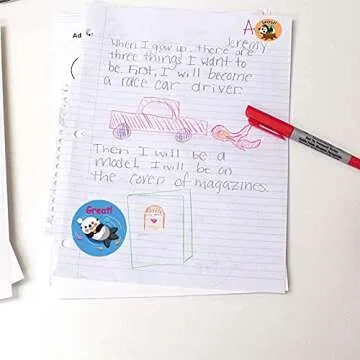 Ad
A
WOW!
Jeremy
When I grow up, there are
three things I want to
be. First, I will become
a race car driver.
Then I will be a
model. I will be on
the cover of magazines.
Great!